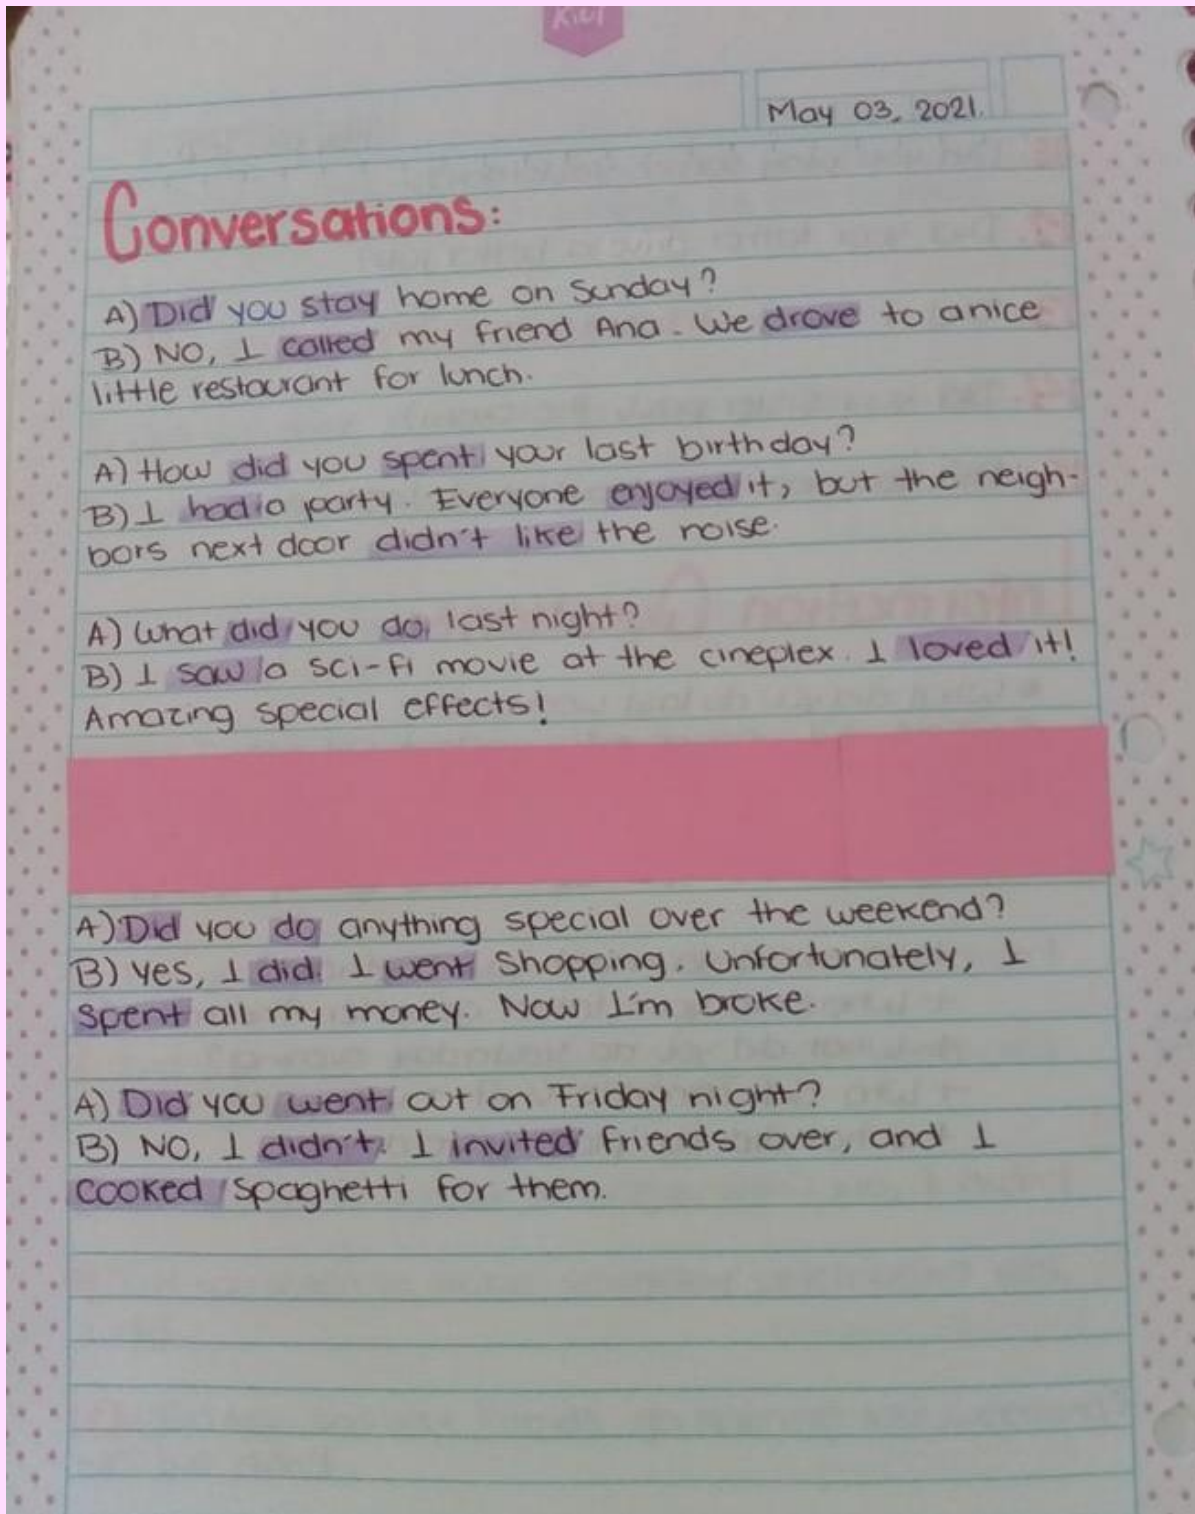 Kiut
May 03, 2021.
Conversations:
A) Did you stay home on Sunday?
B) NO, I called my friend Ana. We drove to a nice
little restaurant for lunch.
A) How did you spent your last birthday?
B) I had a party. Everyone enjoyed it, but the neigh-
bors next door didn't like the noise.
A) What did you do last night?
B) I saw a sci-fi movie at the cineplex. I loved it!
Amazing special effects!
A) Did you do anything special over the weekend?
B) Yes, I did. I went shopping. Unfortunately, I
spent all my money. Now I'm broke.
A) Did you went out on Friday night?
B) NO, I didn't. I invited friends over, and I
cooked spaghetti for them.